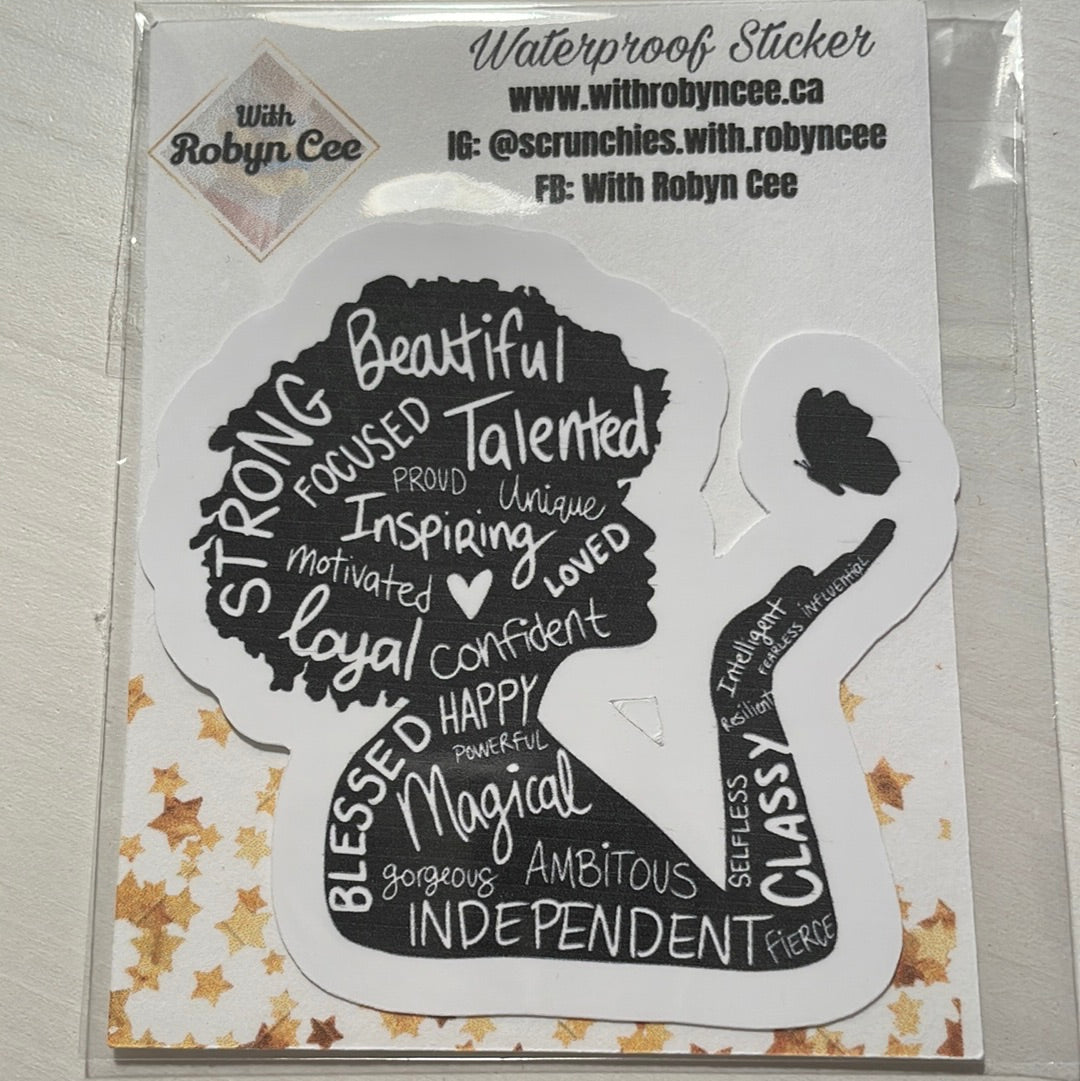 With
Robyn Cee
Waterproof Sticker
www.withrobyncee.ca
IG: @scrunchies.with.robyncee
FB: With Robyn Cee
Beautiful
STRONG
FOCUSED
Talented
PROUD
Unique
Inspiring
LOVED
motivated
loyal
confident
HAPPY
BLESSED
POWERFUL
Magical
gorgeous
AMBiTOUS
INDEPENDENT
FiERCE
CLASSY
SELFLESS
Resilient
Intelligent
FEARLESS
iNFLUENTiAL